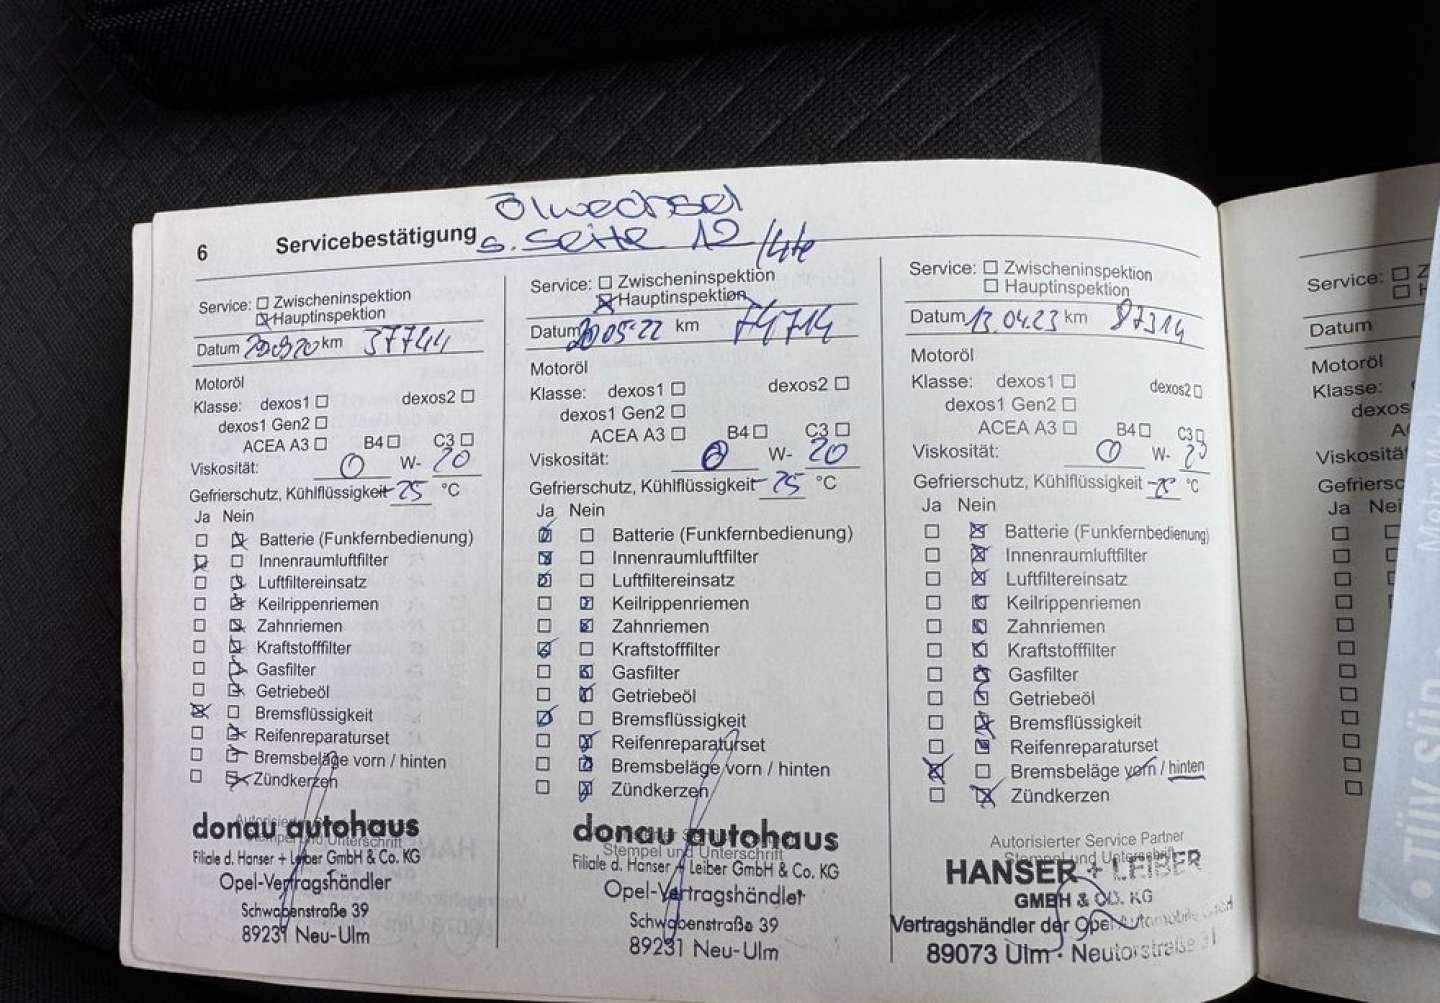 Ölwechsel
6 Servicebestätigung s. Seite 12
Service: Zwischeninspektion
Hauptinspektion
Datum km 37744
Motoröl
Klasse: dexos1 dexos2
dexos1 Gen2
ACEA A3 B4 C3
Viskosität: 0 W- 20
Gefrierschutz, Kühlflüssigkeit -25 °C
Ja Nein
Batterie (Funkfernbedienung)
Innenraumluftfilter
Luftfiltereinsatz
Keilrippenriemen
Zahnriemen
Kraftstofffilter
Gasfilter
Getriebeöl
Bremsflüssigkeit
Reifenreparaturset
Bremsbeläge vorn / hinten
Zündkerzen
donau autohaus
Stempel und Unterschrift
Filiale d. Hanser + Leiber GmbH & Co. KG
Opel-Vertragshändler
Schwabenstraße 39
89231 Neu-Ulm
Service: Zwischeninspektion
Hauptinspektion
Datum 20.05.22 km 74714
Motoröl
Klasse: dexos1 dexos2
dexos1 Gen2
ACEA A3 B4 C3
Viskosität: 0 W- 20
Gefrierschutz, Kühlflüssigkeit -25 °C
Ja Nein
Batterie (Funkfernbedienung)
Innenraumluftfilter
Luftfiltereinsatz
Keilrippenriemen
Zahnriemen
Kraftstofffilter
Gasfilter
Getriebeöl
Bremsflüssigkeit
Reifenreparaturset
Bremsbeläge vorn / hinten
Zündkerzen
donau autohaus
Stempel und Unterschrift
Filiale d. Hanser + Leiber GmbH & Co. KG
Opel-Vertragshändler
Schwabenstraße 39
89231 Neu-Ulm
Service: Zwischeninspektion
Hauptinspektion
Datum 13.04.23 km 87314
Motoröl
Klasse: dexos1 dexos2
dexos1 Gen2
ACEA A3 B4 C3
Viskosität: 0 W- 20
Gefrierschutz, Kühlflüssigkeit -25 °C
Ja Nein
Batterie (Funkfernbedienung)
Innenraumluftfilter
Luftfiltereinsatz
Keilrippenriemen
Zahnriemen
Kraftstofffilter
Gasfilter
Getriebeöl
Bremsflüssigkeit
Reifenreparaturset
Bremsbeläge vorn / hinten
Zündkerzen
Autorisierter Service Partner
Stempel und Unterschrift
HANSER + LEIBER
GMBH & CO. KG
Vertragshändler der Opel Automobile GmbH
89073 Ulm · Neutorstraße
Service:
Datum
Motoröl
Klasse:
dexos
Viskosität
Gefriersc
Ja Nei
• TÜV SÜD •